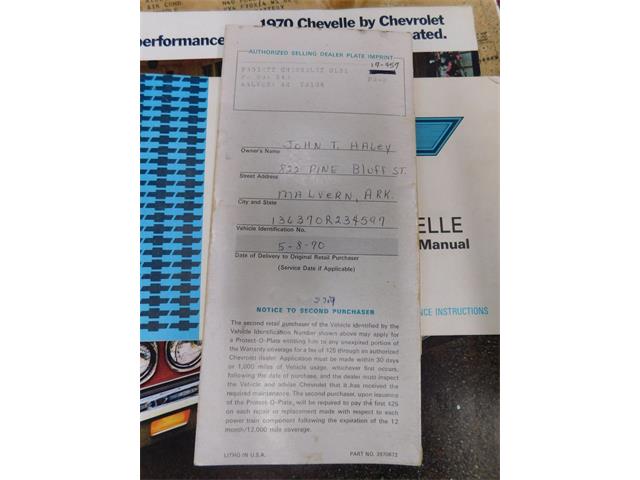 1970 Chevelle by Chevrolet
performance
ated.
AUTHORIZED SELLING DEALER PLATE IMPRINT
CHEVROLET OLDS
17-457
P. O. BOX
MALVERN AR 72104
JOHN T. HALEY
Owner's Name
822 PINE Bluff ST.
Street Address
MALVERN, ARK.
City and State
136370R234597
Vehicle Identification No.
5-8-70
Date of Delivery to Original Retail Purchaser
(Service Date if Applicable)
NOTICE TO SECOND PURCHASER
The second retail purchaser of the Vehicle identified by the
Vehicle Identification Number shown above may apply for
a Protect-O-Plate entitling him to any unexpired portion of
the Warranty coverage for a fee of $25 through an authorized
Chevrolet dealer. Application must be made within 30 days
or 1,000 miles of Vehicle usage, whichever first occurs,
following the date of purchase, and the dealer must inspect
the Vehicle and advise Chevrolet that it has received the
required maintenance. The second purchaser, upon issuance
of the Protect-O-Plate, will be required to pay the first $25
on each repair or replacement made with respect to each
power train component following the expiration of the 12
month/12,000 mile coverage.
LITHO IN U.S.A.
PART NO. 3970672
ELLE
Manual
NCE INSTRUCTIONS